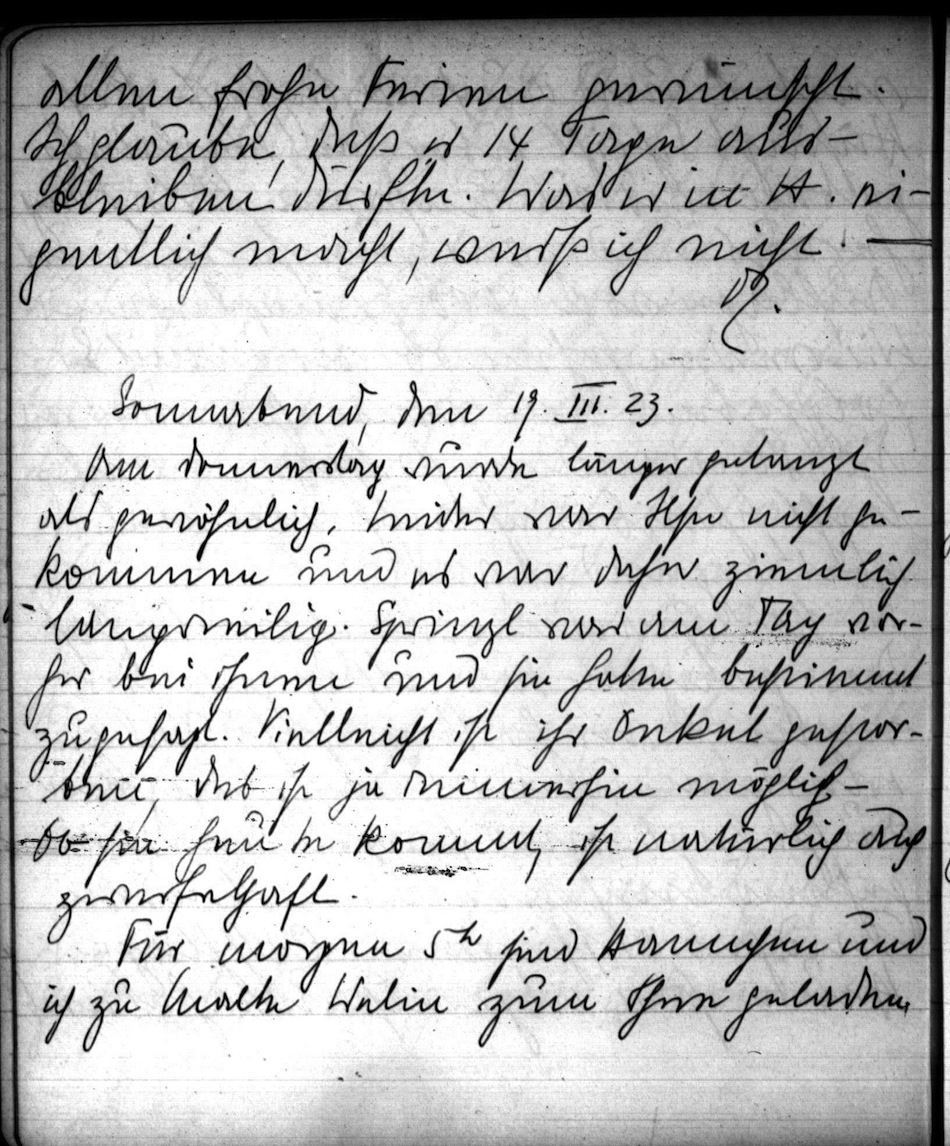 allen frohe Ferien gewünscht.
Ich glaube, daß er 14 Tage aus-
bleiben dürfte. Was er in H. ei-
gentlich macht, weiß ich nicht. —
Sonnabend, den 19. III. 23.
Am Donnerstag wurde länger getanzt
als gewöhnlich. Leider war Ilse nicht ge-
kommen und es war daher ziemlich
langweilig. Sprinzl war am Tag vor-
her bei ihnen und sie hatte bestimmt
zugesagt. Vielleicht ist ihr Onkel gestor-
ben, das ist ja immerhin möglich –
Ob sie heute kommt, ist natürlich auch
zweifelhaft.
Für morgen 5h sind Hannchen und
ich zu Malte Welin zum Thee geladen,